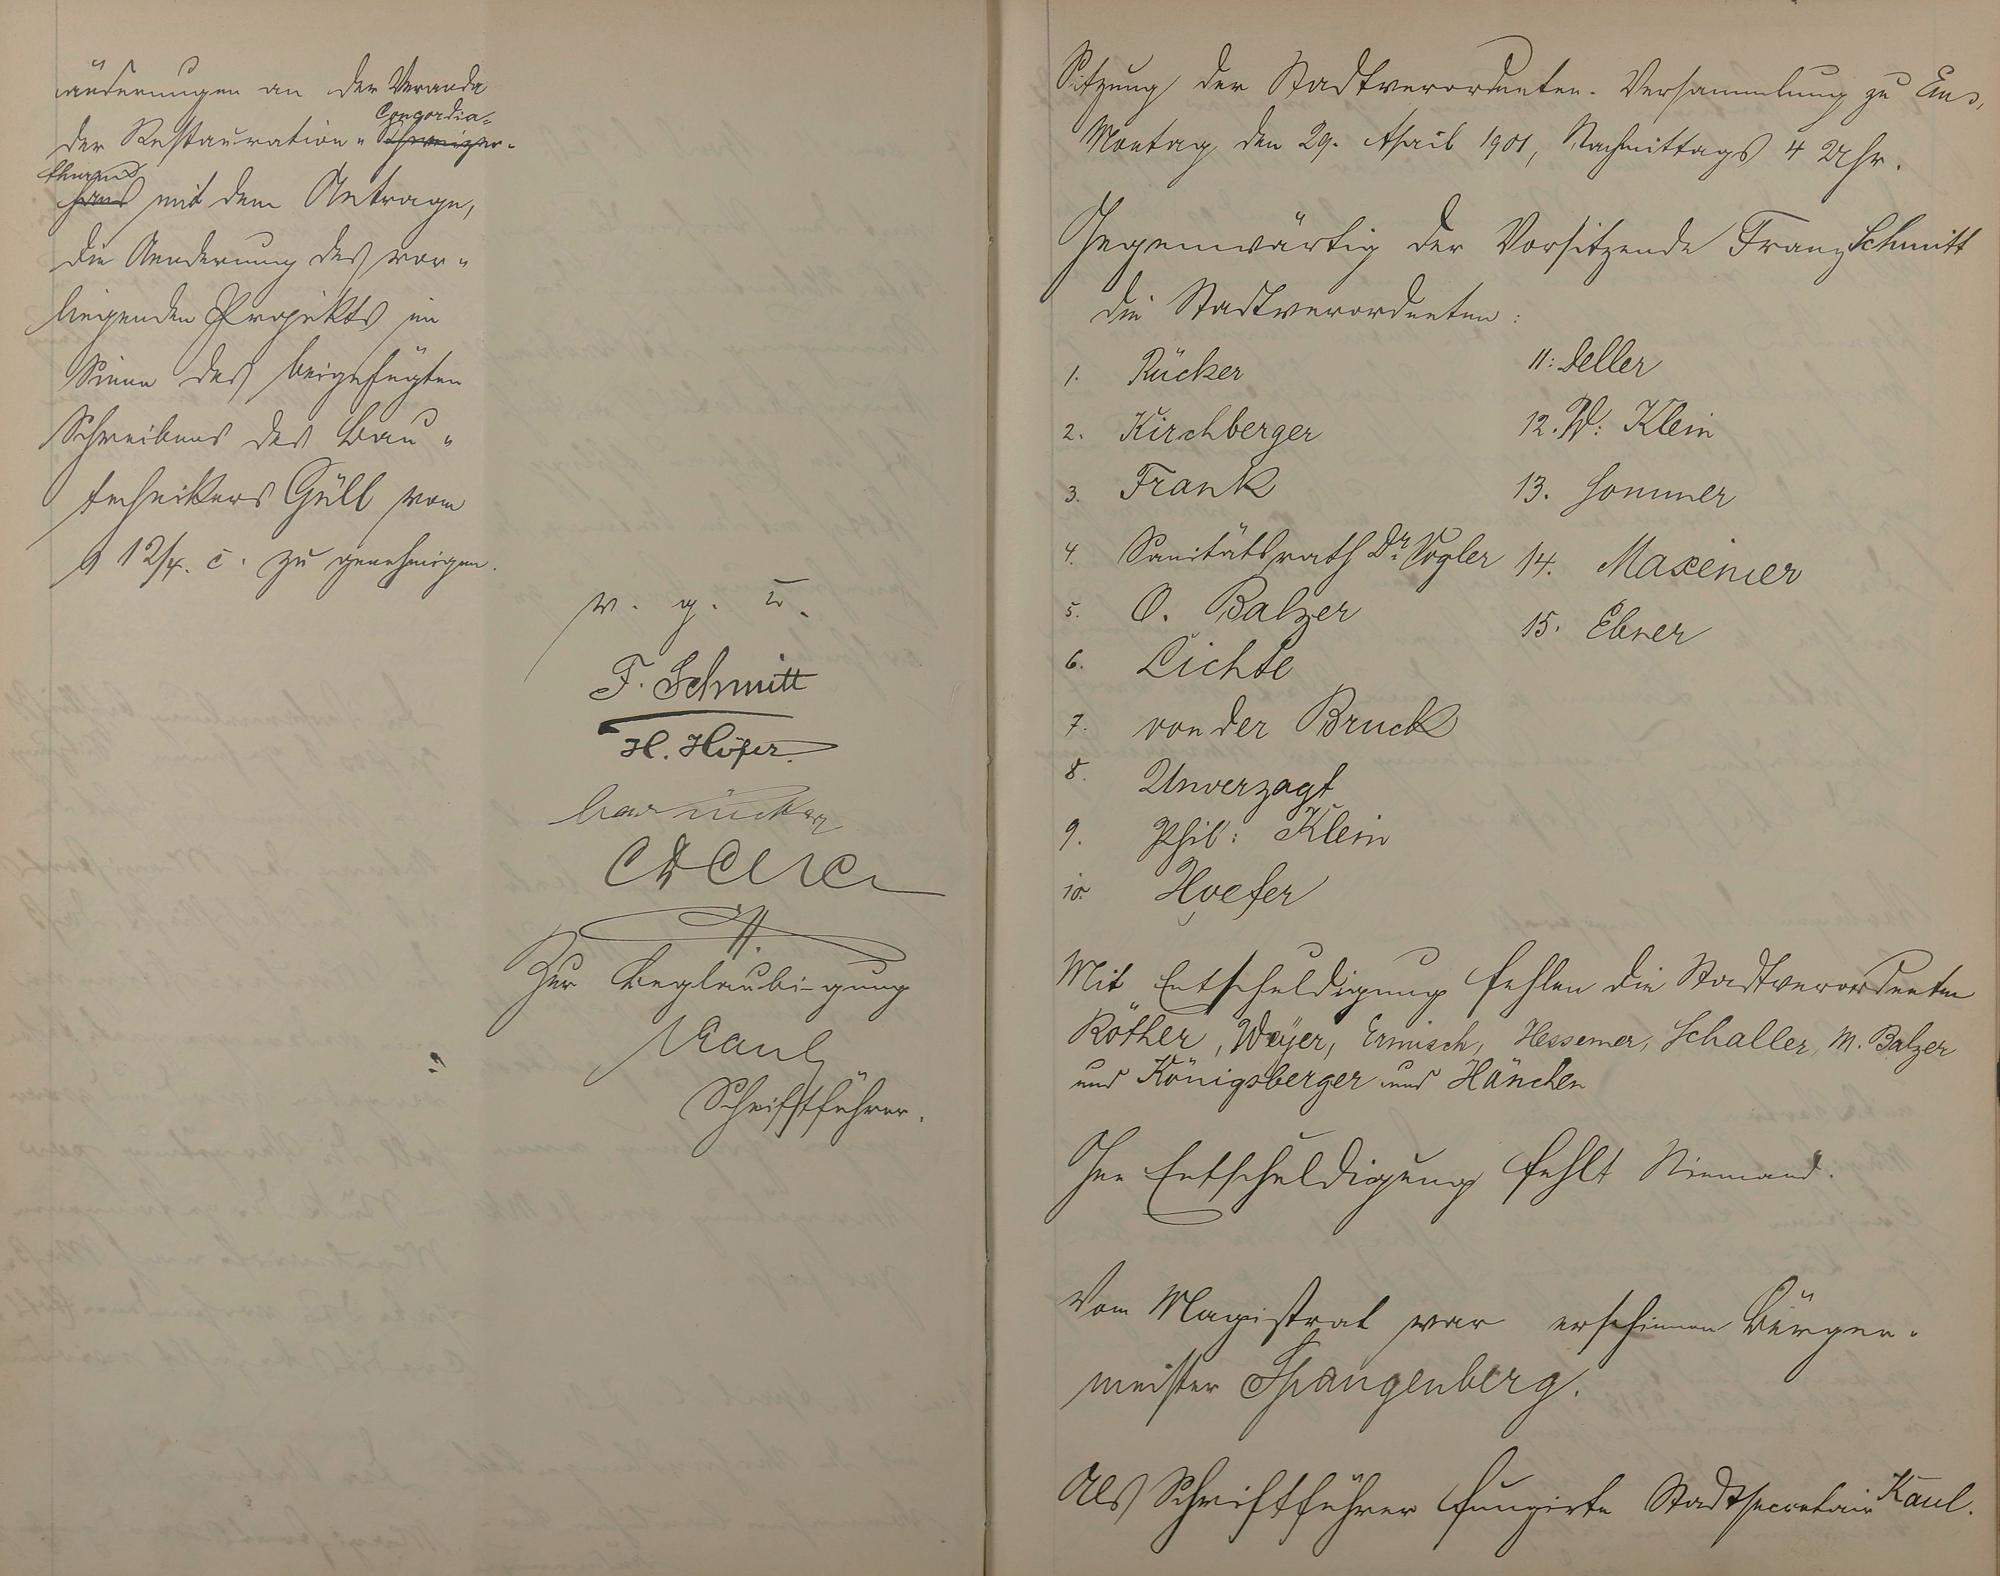 änderungen an der Veranda
Concordia-
der Restauration „Schweizer-
thurm
haus mit dem Antrage,
die Aenderung des vor-
liegenden Projekts im
Sinne des beigefügten
Schreibens des Bau-
technikers Güll vom
12/4. c. zu genehmigen.
v. g. u.
F. Schmitt
H. Höfer.
Zur Beglaubigung
Kaul
Schriftführer.
Sitzung der Stadtverordneten-Versammlung zu Ems,
Montag den 29. April 1901, Nachmittags 4 Uhr.
Gegenwärtig der Vorsitzende Franz Schmitt
die Stadtverordneten:
1. Rücker
2. Kirchberger
3. Frank
4. Sanitätsrath Dr. Vogler
5. O. Balzer
6. Lichte
7. von der Bruck
8. Unverzagt
9. Phil: Klein
10. Hoefer
11: Deller
12. W: Klein
13. Sommer
14. Maxeiner
15. Ebner
Mit Entschuldigung fehlen die Stadtverordneten
Röther, Weyer, Ermisch, Hessemer, Schaller, M. Balzer
und Königsberger und Hänchen
Ohne Entschuldigung fehlt Niemand.
Vom Magistrat war erschienen Bürger-
meister Spangenberg.
Als Schriftführer fungirte Stadtsecretair Kaul.